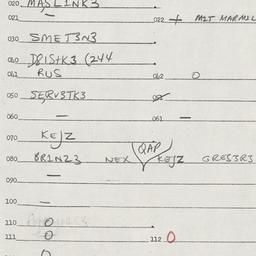 020 MASLINK3
021 — 022 + MIT MARMIL
030 SMET3N3
040 .
041 RUS 042 0
050 SERV3TK3 052
060 — 061 —
070 KEJZ
QAP
080 BRINZ3 NEX KEJZ GRES3R3
090 —
100 —
110 0
111 0 112 0
0